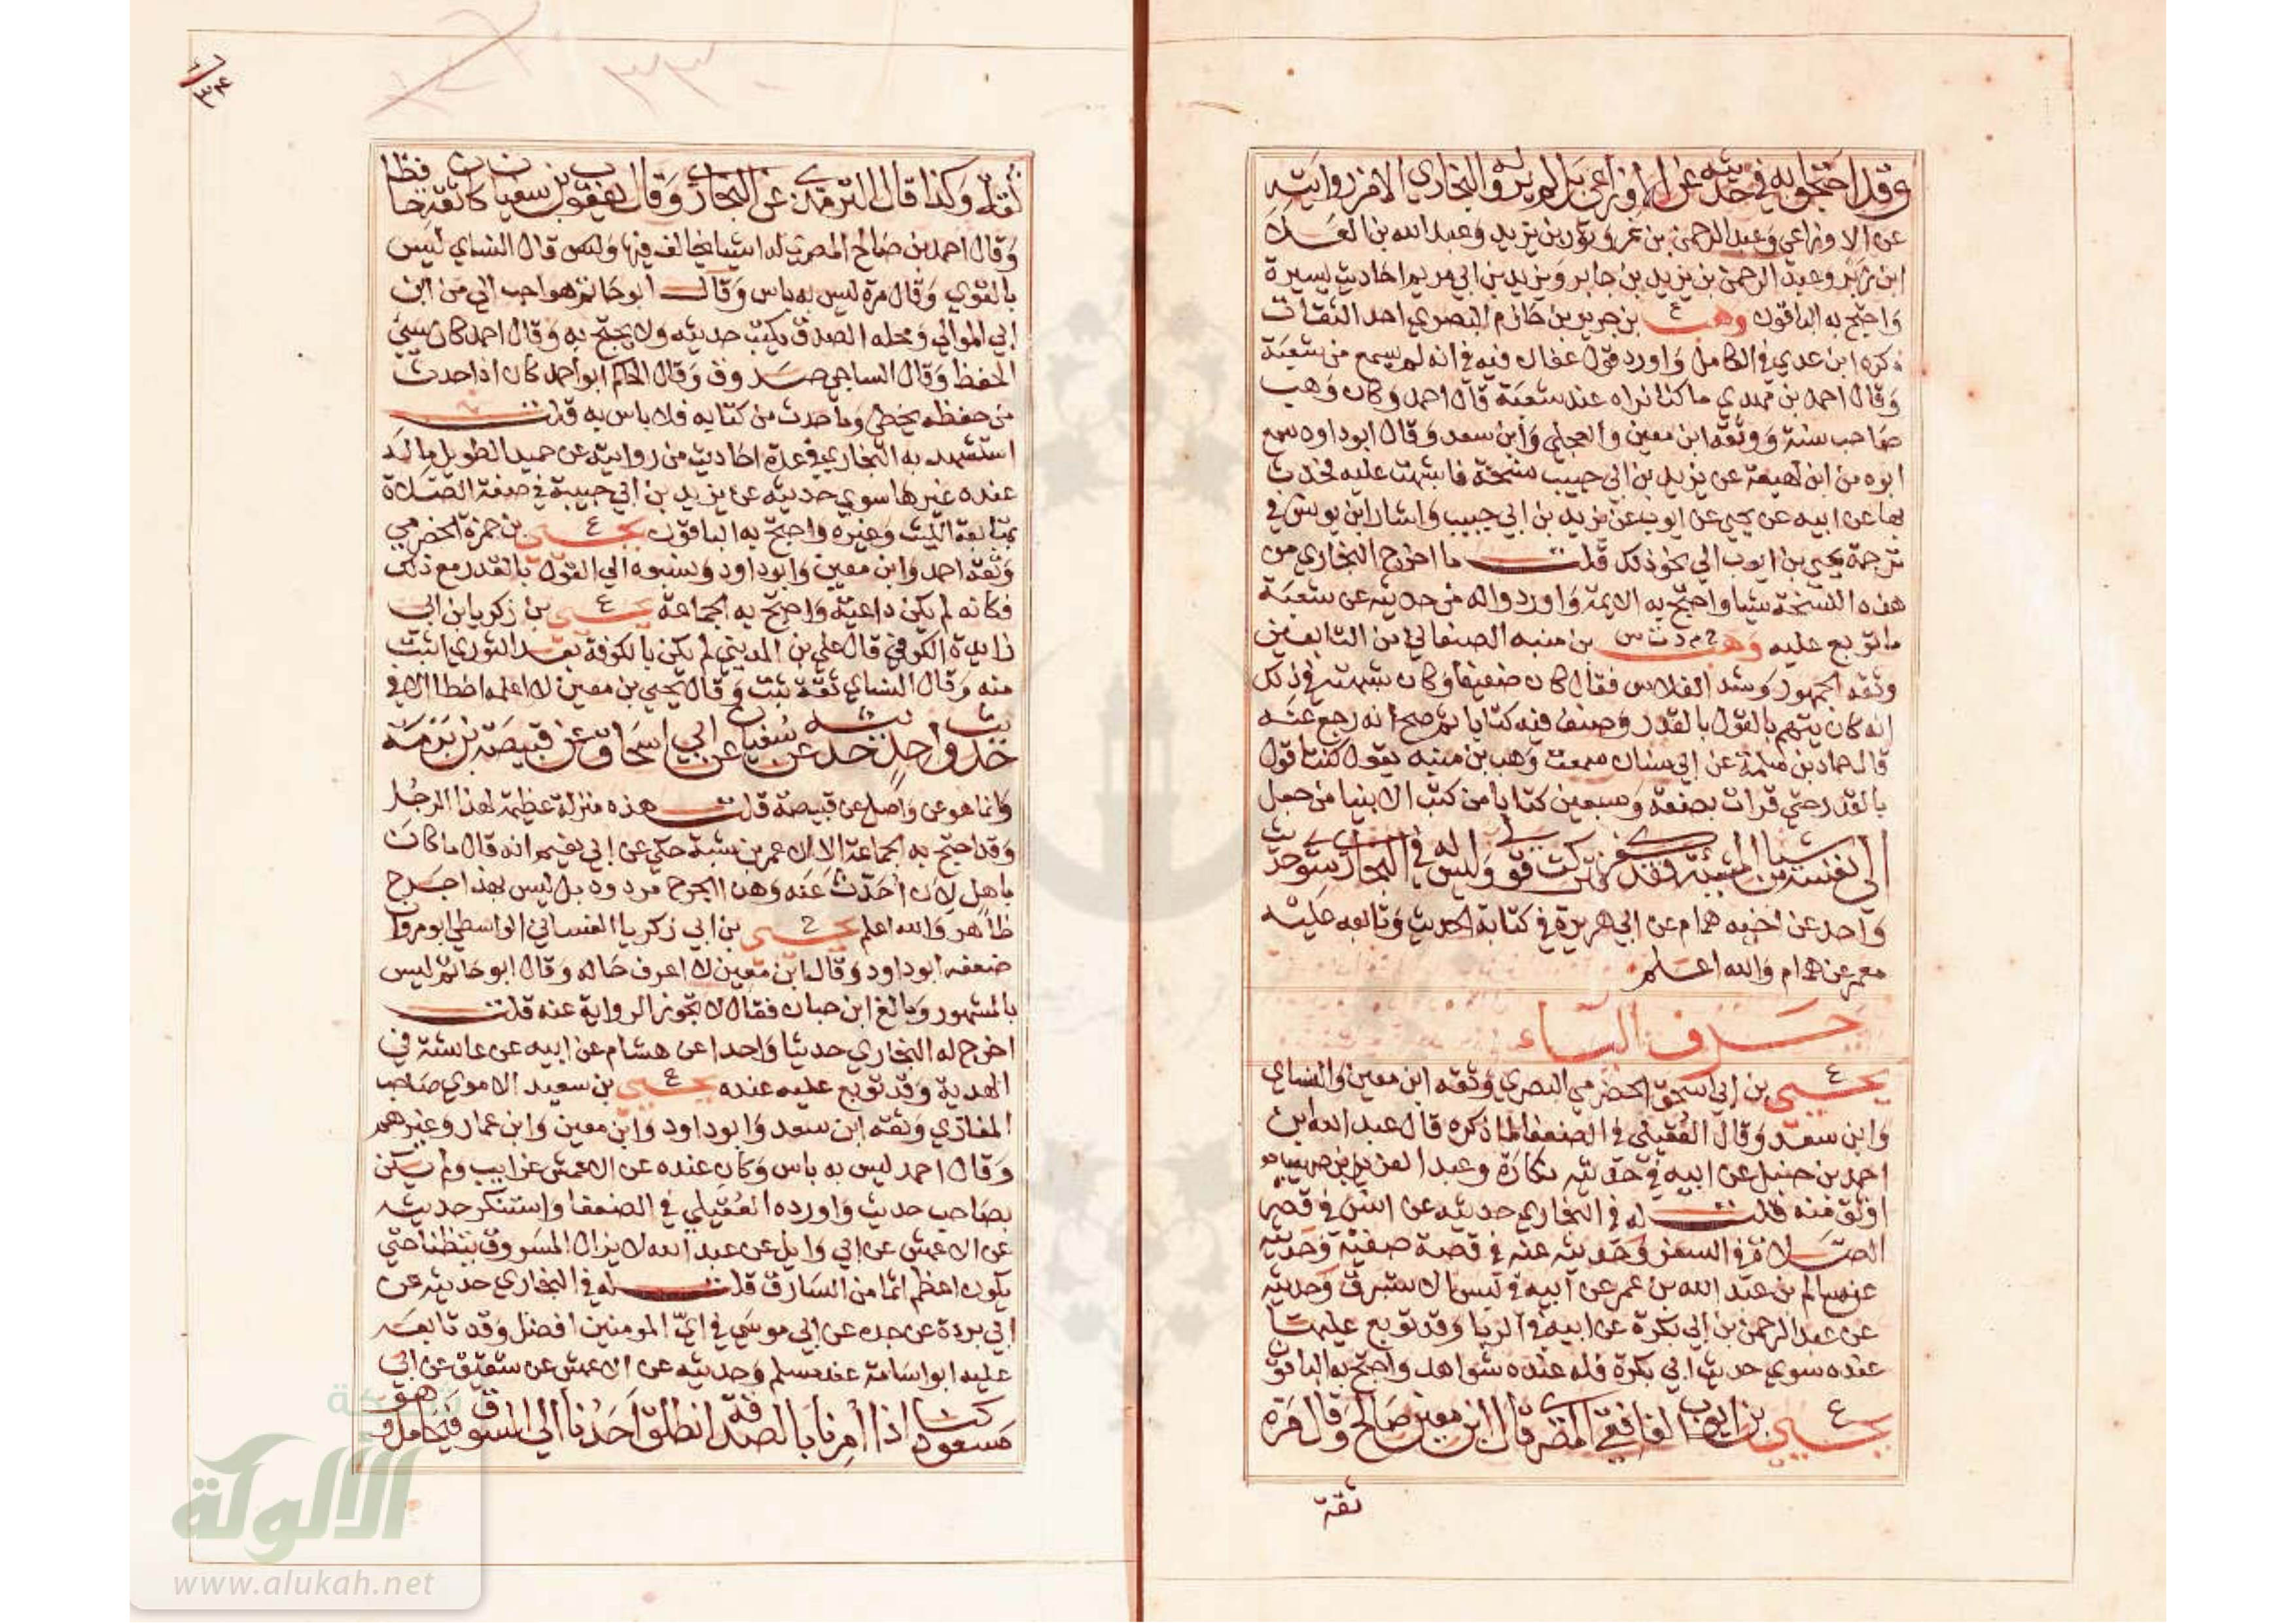 وقد احتجوا به في حديثه عن الاوزاعي بل لم يرو له البخاري الا من روايته
عن الاوزاعي وعبد الرحمن بن نمر وثور بن يزيد وعبد الله بن العلاء
ابن زبر وعبد الرحمن بن يزيد بن جابر ويزيد بن ابي مريم احاديث يسيرة
واحتج به الباقون وهب ع بن جرير بن حازم البصري احد الثقات
ذكره ابن عدي في الكامل واورد قول عفان فيه في انه لم يسمع من شعبة
وقال احمد بن مهدي ما كنا نراه عند شعبة قال احمد وكان وهب
صاحب سنة ووثقه ابن معين والعجلي وابن سعد وقال ابو داود سمع
ابوه من ابن لهيعة عن يزيد بن ابي حبيب نسخة فاشتهت عليه فحدث
بها عن ابيه عن يحيى عن ايوب عن يزيد بن ابي حبيب واشار ابن يونس في
ترجمة يحيى بن ايوب الي نحو ذلك قلت ما اخرج البخاري من
هذه النسخة شيا واحتج به الايمة واورد واله من حديثه عن شعبة
ما توبع عليه وهب خ م د ت س بن منبه الصنعاني من التابعين
وثقه الجمهور وشذ الفلاس فقال كان ضعيفا وكان شبهته في ذلك
انه كان يتهم بالقول بالقدر وصنف فيه كتابا ثم صح انه رجع عنه
قال حماد بن سلمة عن ابي سنان سمعت وهب بن منبه يقول كنت اقول
بالقدر حتي قرات بضعة وسبعين كتابا من كتب الانبيا من جعل
الي نفسه شيا من المشيئة فقد كفر فتركت قولي وليس له في البخاري سوي حديث
واحد عن اخيه همام عن ابي هريرة في كتابة الحديث وتابعه عليه
معمر عن همام والله اعلم
حرف الياء
يحيى ع بن ابي اسحق الحضرمي البصري وثقه ابن معين والنساي
وابن سعد وقال العقيلي في الضعفا لما ذكره قال عبد الله بن
احمد بن حنبل عن ابيه في حديثه نكارة وعبد العزيز بن صهيب
اوثق منه قلت له في البخاري حديثه عن انس في قصر
الصلاة في السفر وحديثه عنه في قصة صفية وحديثه
عن سالم بن عبد الله بن عمر عن ابيه في لبس الاستبرق وحديثه
عن عبد الرحمن بن ابي بكرة عن ابيه في الربا وقد توبع عليها
عنده سوي حديث ابي بكرة فله عنده شواهد واحتج به الباقون
يحيى ع بن ايوب الغافقي المصري قال ابن معين صالح وقال مرة
ثقة
ثقة وكذا قال الترمذي عن البخاري وقال يعقوب بن سفيان كان ثقة حافظا
وقال احمد بن صالح المصري له اشيا يخالف فيها وليس قال النساي ليس
بالقوي وقال مرة ليس به باس وقال ابو حاتم هو احب الي من ابن
ابي الموالي ومحله الصدق يكتب حديثه ولا يحتج به وقال احمد كان سيئ
الحفظ وقال الساجي صدوق وقال الحاكم ابو احمد كان اذا حدث
من حفظه يخطي وما حدث من كتابه فلا باس به قلت
استشهد به البخاري في عدة احاديث من روايته عن حميد الطويل ماله
عنده غيرها سوي حديثه عن يزيد بن ابي حبيبة في صفة الصلاة
بمتابعة الليث وغيره واحتج به الباقون يحيى ع بن حمزة الحضرمي
وثقه احمد وابن معين وابو داود ونسبوه الي القول بالقدر مع ذلك
فكانه لم يكن داعية واحتج به الجماعة يحيى ع بن زكريا بن ابي
زايدة الكوفي قال علي بن المديني لم يكن بالكوفة بعد الثوري اثبت
منه وقال النساي ثقة ثبت وقال يحيى بن معين لا اعلمه اخطا الا في
حديث واحد حديثه عن سفيان عن ابي اسحاق عن قبيصة بن برمة
وانما هو عن واصل عن قبيصة قلت هذه منزلة عظيمة لهذا الرجل
وقد احتج به الجماعة الا ان عمر بن شبة حكي عن ابي نعيم انه قال ما كان
باهل لان احدث عنه وهذا الجرح مردود بل ليس بهذا جرح
ظاهر والله اعلم يحيى خ بن ابي زكريا الغساني الواسطي ابو مروا
ضعفه ابو داود وقال ابن معين لا اعرف حاله وقال ابو حاتم ليس
بالمشهور وبالغ ابن حبان فقال لا تجوز الرواية عنه قلت
اخرج له البخاري حديثا واحدا عن هشام عن ابيه عن عائشة في
الهدية وقد توبع عليه عنده يحيى ع بن سعيد الاموي صاحب
المغازي وثقه ابن سعد وابو داود وابن معين وابن عمار وغيرهم
وقال احمد ليس به باس وكان عنده عن الاعمش غرايب ولم يكن
بصاحب حديث واورده العقيلي في الضعفا واستنكر حديثه
عن الاعمش عن ابي وايل عن عبد الله لا يزال المسروق يتظنا حتي
يكون اعظم اثما من السارق قلت له في البخاري حديثه عن
ابي بردة عن جده عن ابي موسي في اي المومنين افضل وقد تابعه
عليه ابو اسامة عند مسلم وحديثه عن الاعمش عن شقيق عن ابي
مسعود كنا اذا امرنا بالصدقة انطلق احدنا الي السوق فيحامل وهو
شبكة
الألوكة
www.alukah.net